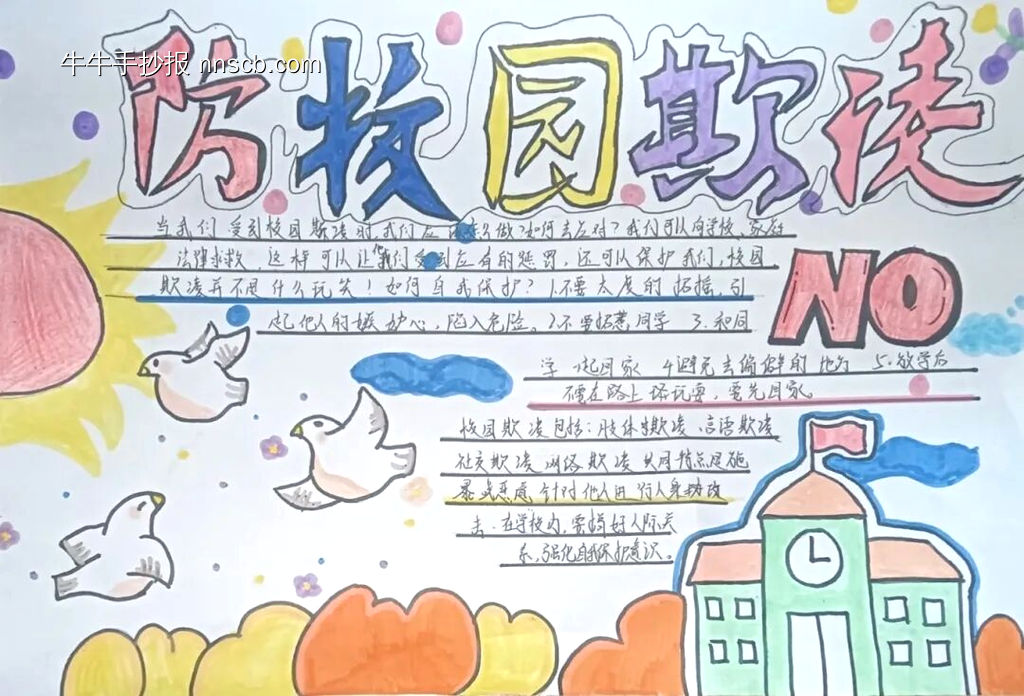 牛牛手抄报 nnscb.com
防校园欺凌
当我们受到校园欺凌时我们应该怎么做?如何去应对?我们可以向学校、家庭
法律求救,这样可以让他们受到应有的惩罚,还可以保护我们,校园
欺凌并不是什么玩笑!如何自我保护?1.不要太度的招摇,引
起他人的嫉妒心,陷入危险。2.不要招惹同学 3.和同
NO
学一起回家 4.避免去偏僻的地方 5.放学后
不要在路上逗玩耍,要先回家。
校园欺凌包括:肢体欺凌、言语欺凌
社交欺凌、网络欺凌 共同特点是施
暴或恶意针对他人进行人身攻
击.在学校内,要搞好人际关
系,强化自我保护意识。